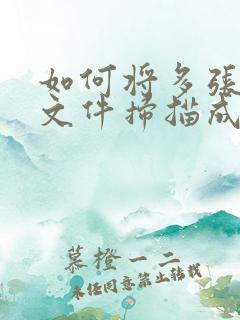 如何将多張
文件掃描成
慕橙一二
未经同意禁止转载